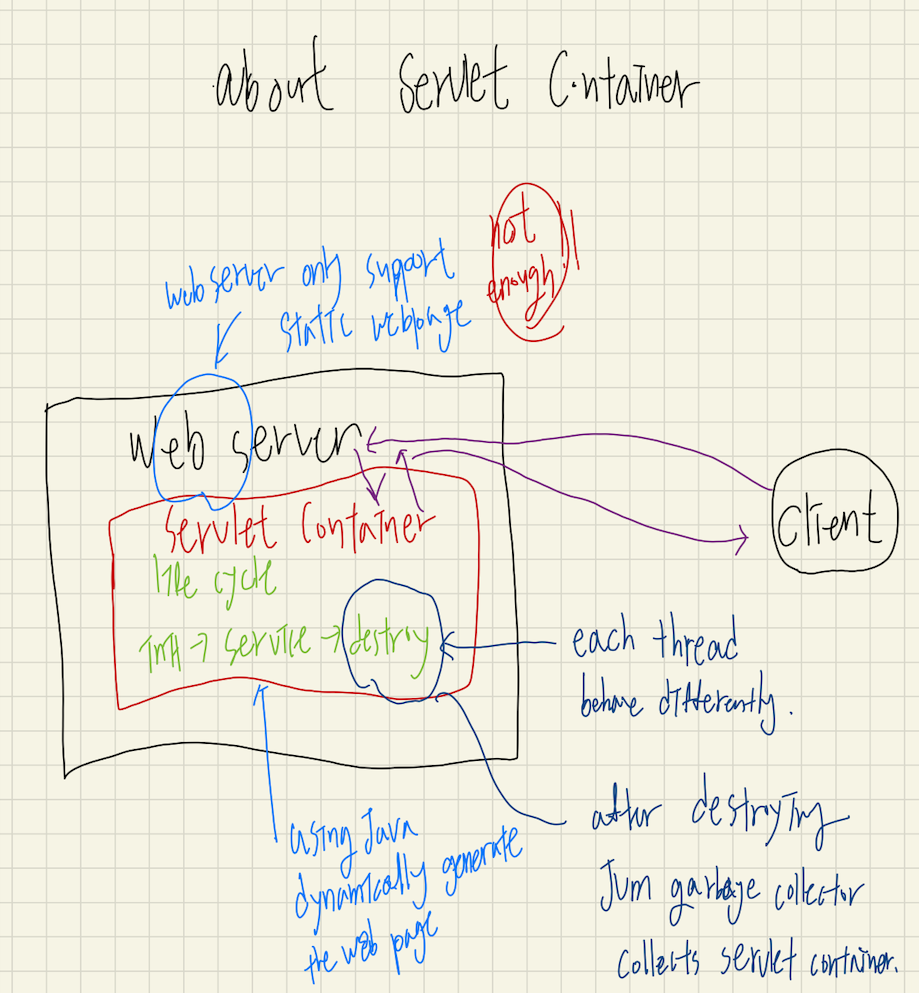 about Servlet Container
not
enough!!
web server only support
static webpage
Web server
Servlet Container
life cycle
init → service → destroy
Client
each thread
behave differently.
using Java
dynamically generate
the web page
after destroying
JVM garbage collector
collects servlet container.